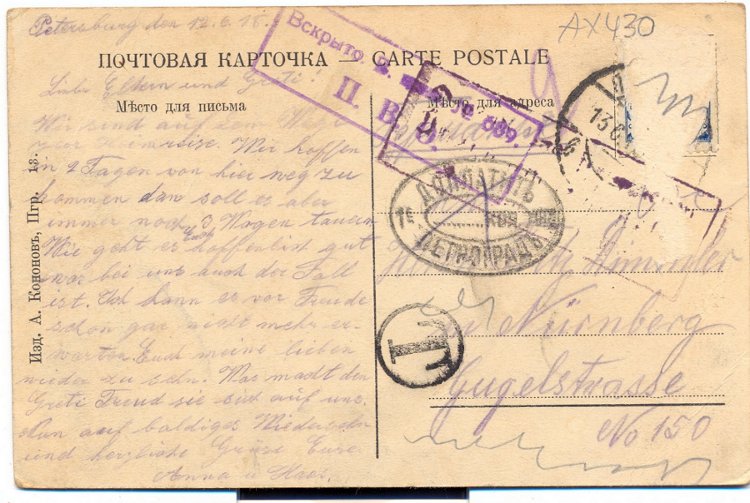 Petersburg den 12.6.18.
AX430
Вскрыто В. 889.
П. В.
ПОЧТОВАЯ КАРТОЧКА — CARTE POSTALE
Мѣсто для письма
Мѣсто для адреса
Liebe Eltern und Greti!
Wir sind auf dem Wege
zur Heimreise. Wir hoffen
in 2 Tagen von hier weg zu
kommen dan soll es aber
immer noch 3 Wogen tauern
Wie geht es Euch hoffenlich gut
was bei uns auch der Fall
ist. Ich kann es vor Freude
schon gar nicht mehr er-
warten Euch meine lieben
wieder zu sehn. Was macht den
Greti Freud sie sich auf uns.
Nun auf baldiges Wiedersehn
und herzliche Grüse Eure
Anna u.
Изд. А. Кононовъ, Пгр. 13.
ДОПЛАТИТЬ
КОП
ПЕТРОГРАДЪ
T
13 6
Nürnberg
Gugelstrasse
No 150